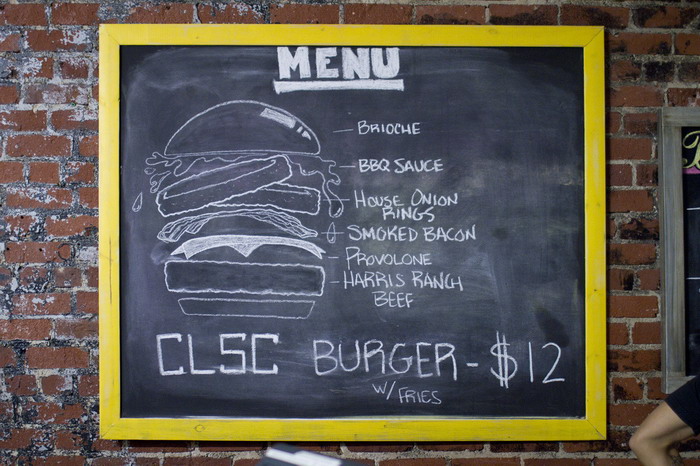 MENU
BRIOCHE
BBQ SAUCE
HOUSE ONION
RINGS
SMOKED BACON
PROVOLONE
HARRIS RANCH
BEEF
CLSC BURGER - $12
W/ FRIES